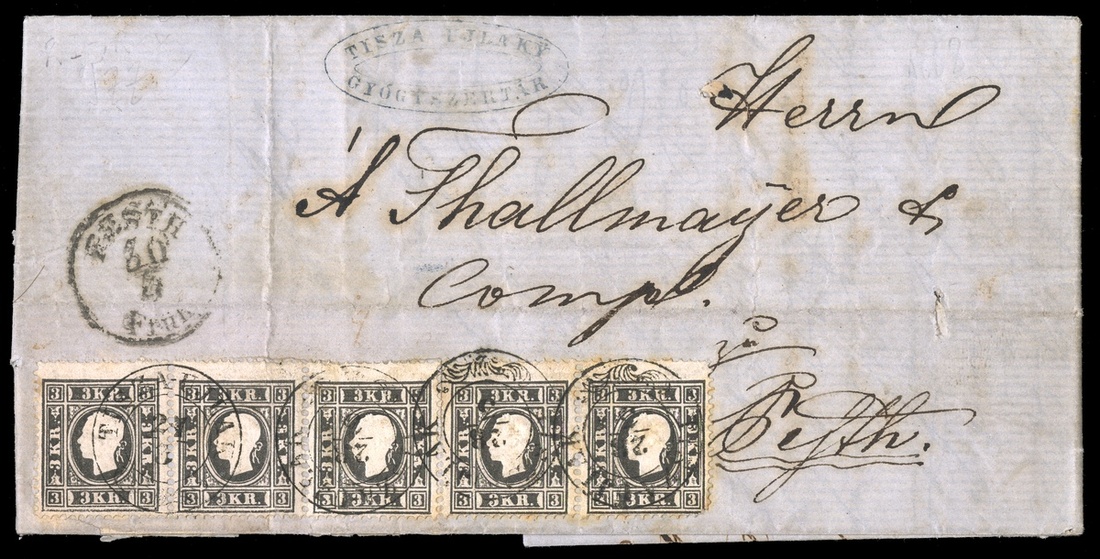 TISZA UJLAKÝ
GYÓGYSZERTÁR
Herrn
A Thallmayer &
Compl.
zu
Pesth.
PESTH
30
5
Früh
3 3KR. 3 3 3KR. 3 3 3KR. 3 3 3KR. 3 3 3KR. 3
3 3KR. 3 3 3KR. 3 3 3KR. 3 3 3KR. 3 3 3KR. 3